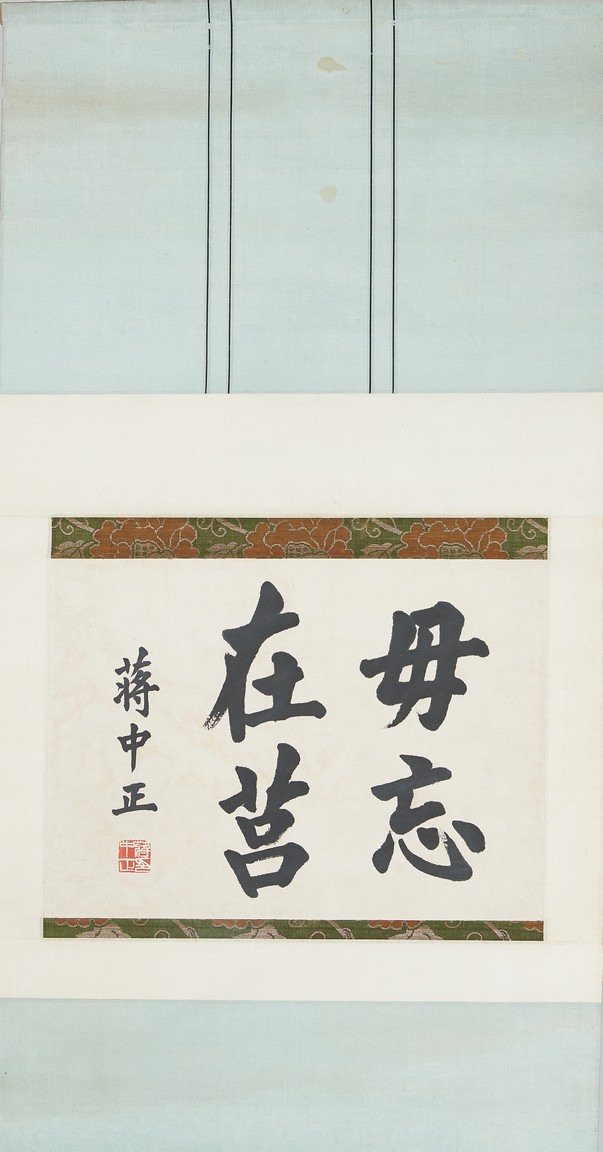 毋忘
在莒
蔣中正